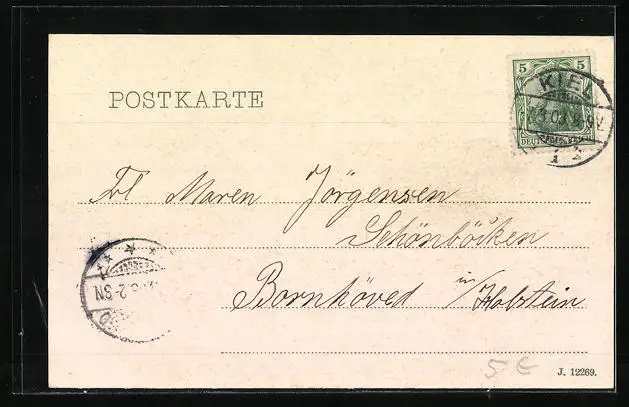 POSTKARTE
5 5
KIEL
Frl Maren Jörgensen
Schönböcken
Bornhöved in/Holstein
2-3N
5 €
J. 12269.